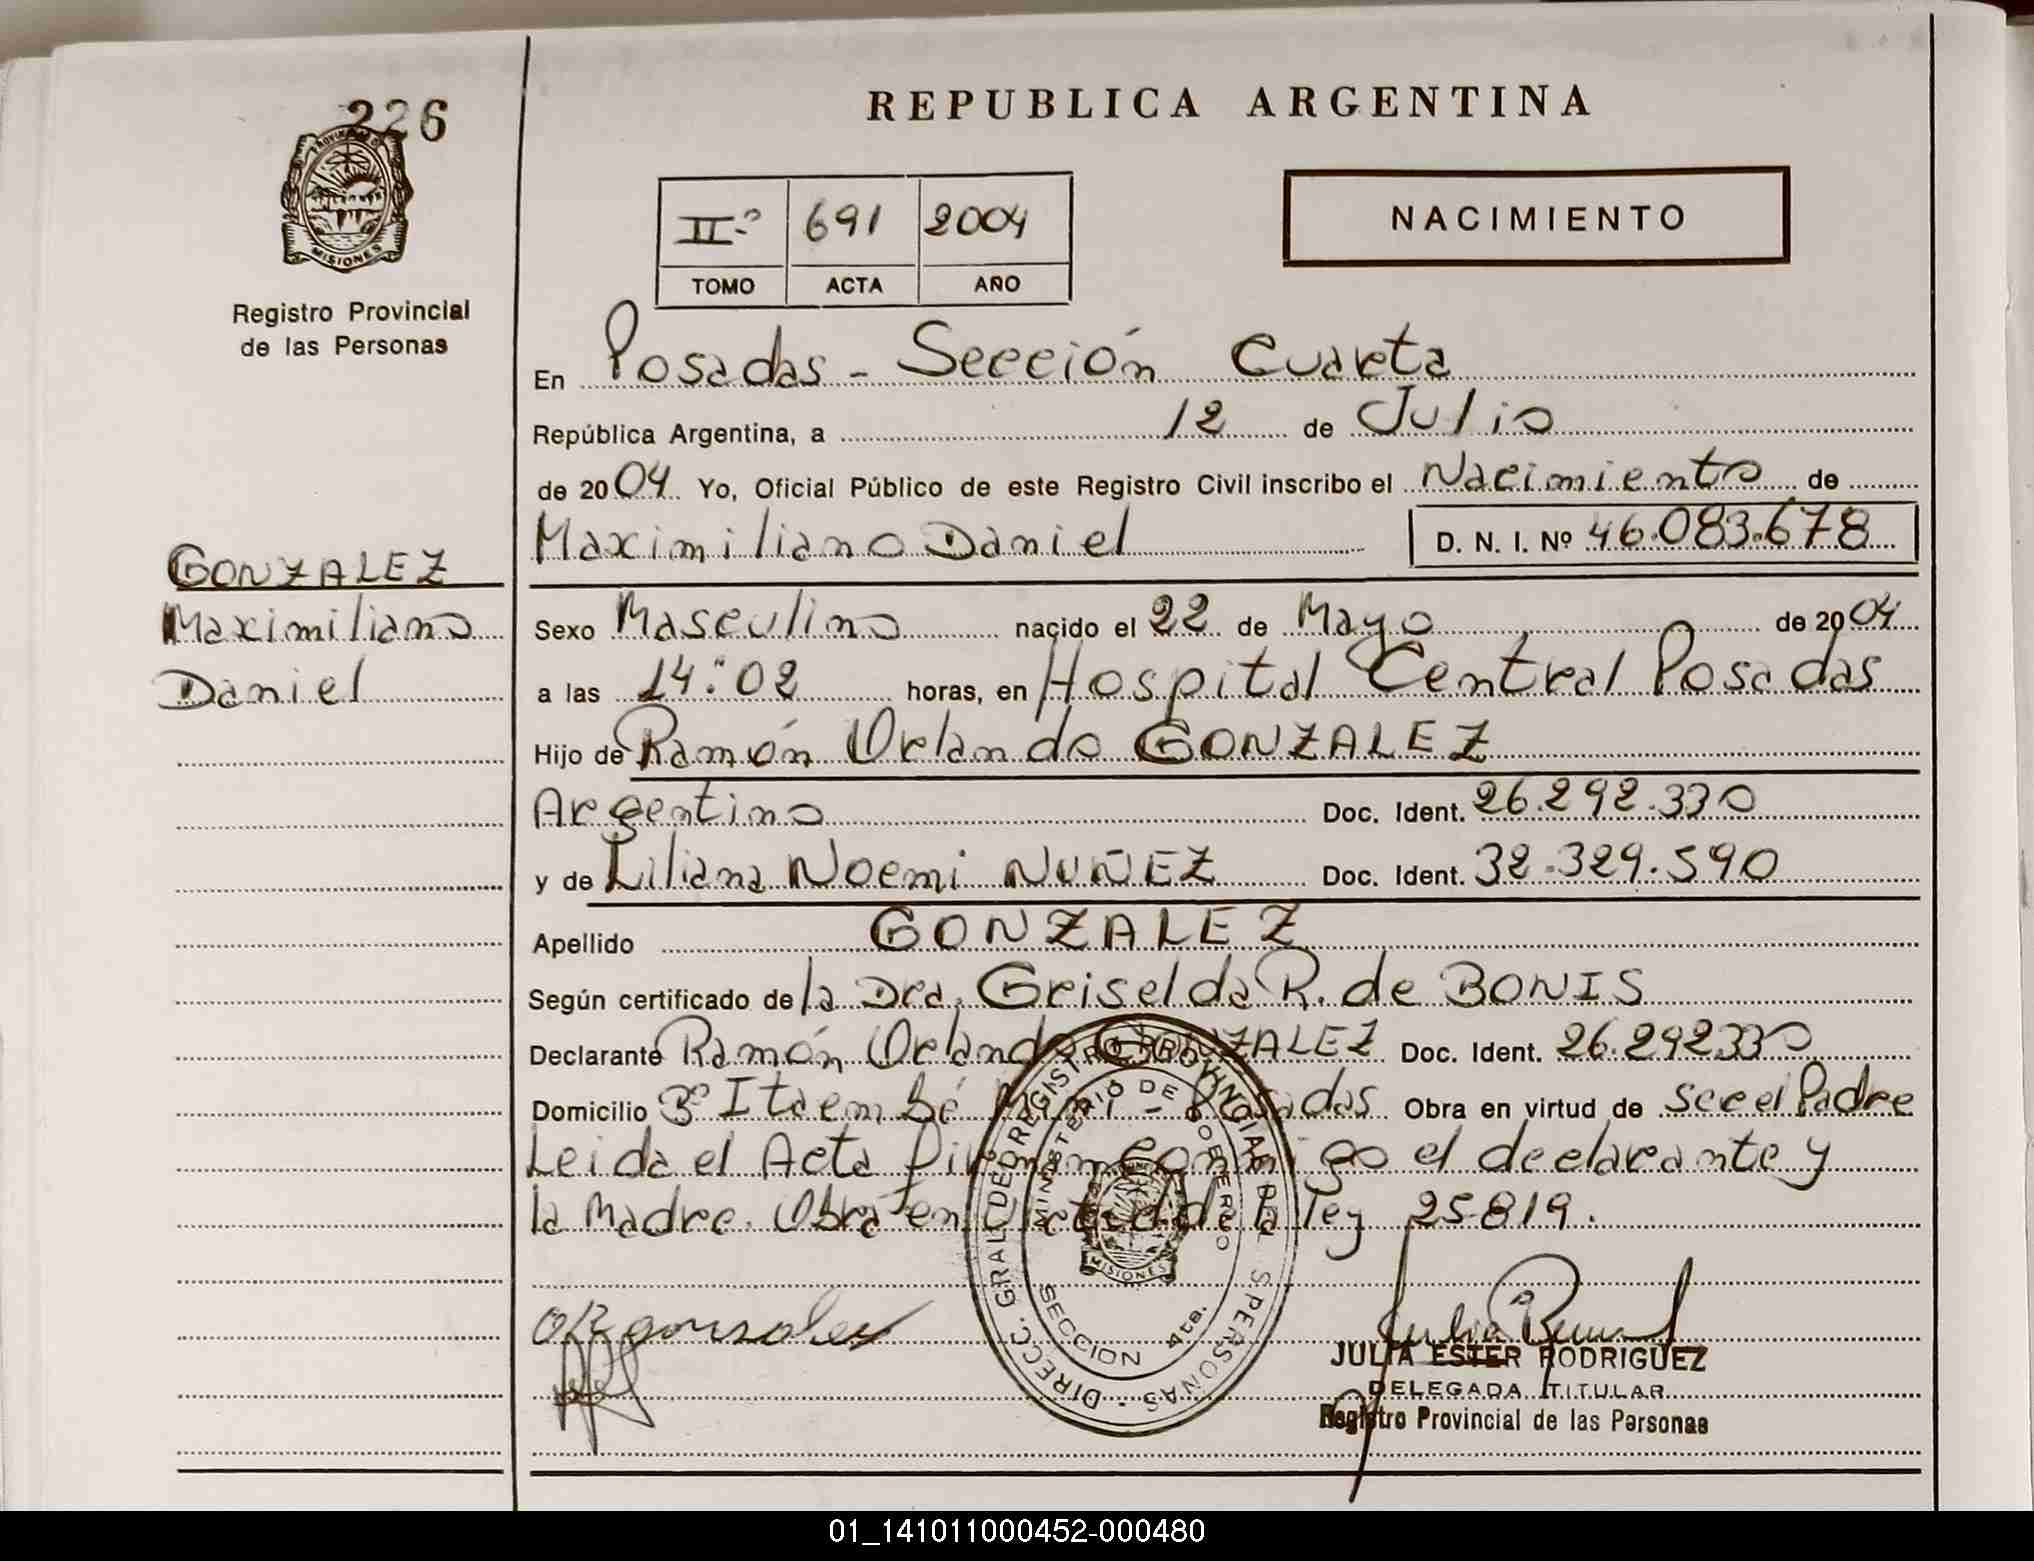 226
PROVINCIA DE
MISIONES
Registro Provincial
de las Personas
GONZALEZ
Maximiliano
Daniel
REPUBLICA ARGENTINA
IIº 691 2004
TOMO ACTA AÑO
NACIMIENTO
En Posadas - Sección Cuarta
República Argentina, a 12 de Julio
de 2004 Yo, Oficial Público de este Registro Civil inscribo el Nacimiento de
Maximiliano Daniel D. N. I. Nº 46.083.678
Sexo Masculino nacido el 22 de Mayo de 2004
a las 14:02 horas, en Hospital Central Posadas
Hijo de Ramón Orlando GONZALEZ
Argentino Doc. Ident. 26.292.330
y de Liliana Noemi NUÑEZ Doc. Ident. 32.329.590
Apellido GONZALEZ
Según certificado de la Dra. Griselda R. de BONIS
Declarante Ramón Orlando GONZALEZ Doc. Ident. 26.292330
Domicilio Bº Itaembé Miní - Posadas Obra en virtud de ser el Padre
Leida el Acta Firman conmigo el declarante y
la Madre. Obra en virtud de la Ley 25819.
DIRECC. GRAL. DEL REGISTRO PROVINCIAL DE LAS PERSONAS
MINISTERIO DE GOBIERNO
MISIONES
SECCION 4ta.
OR gonzalez
JULIA ESTER RODRIGUEZ
DELEGADA TITULAR
Registro Provincial de las Personas
01_141011000452-000480